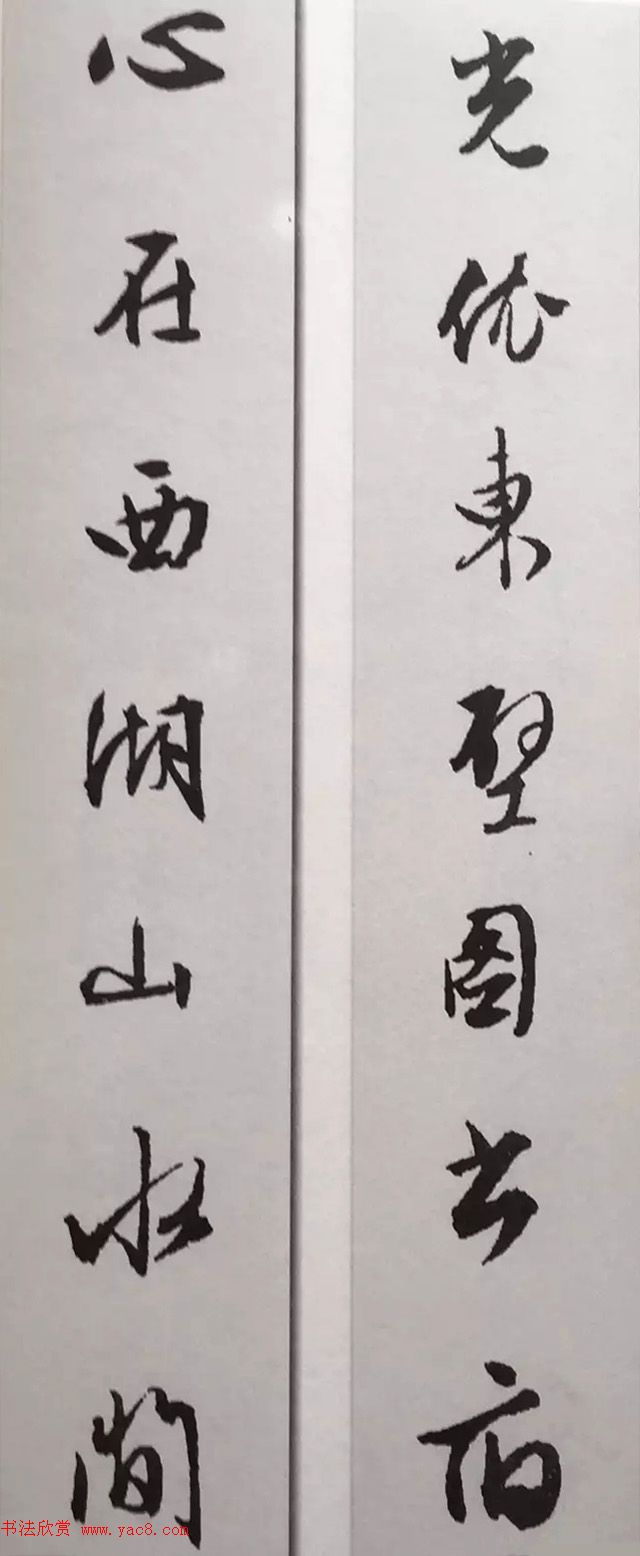 光依東壁圖书府
心在西湖山水間
书法欣赏 www.yac8.com